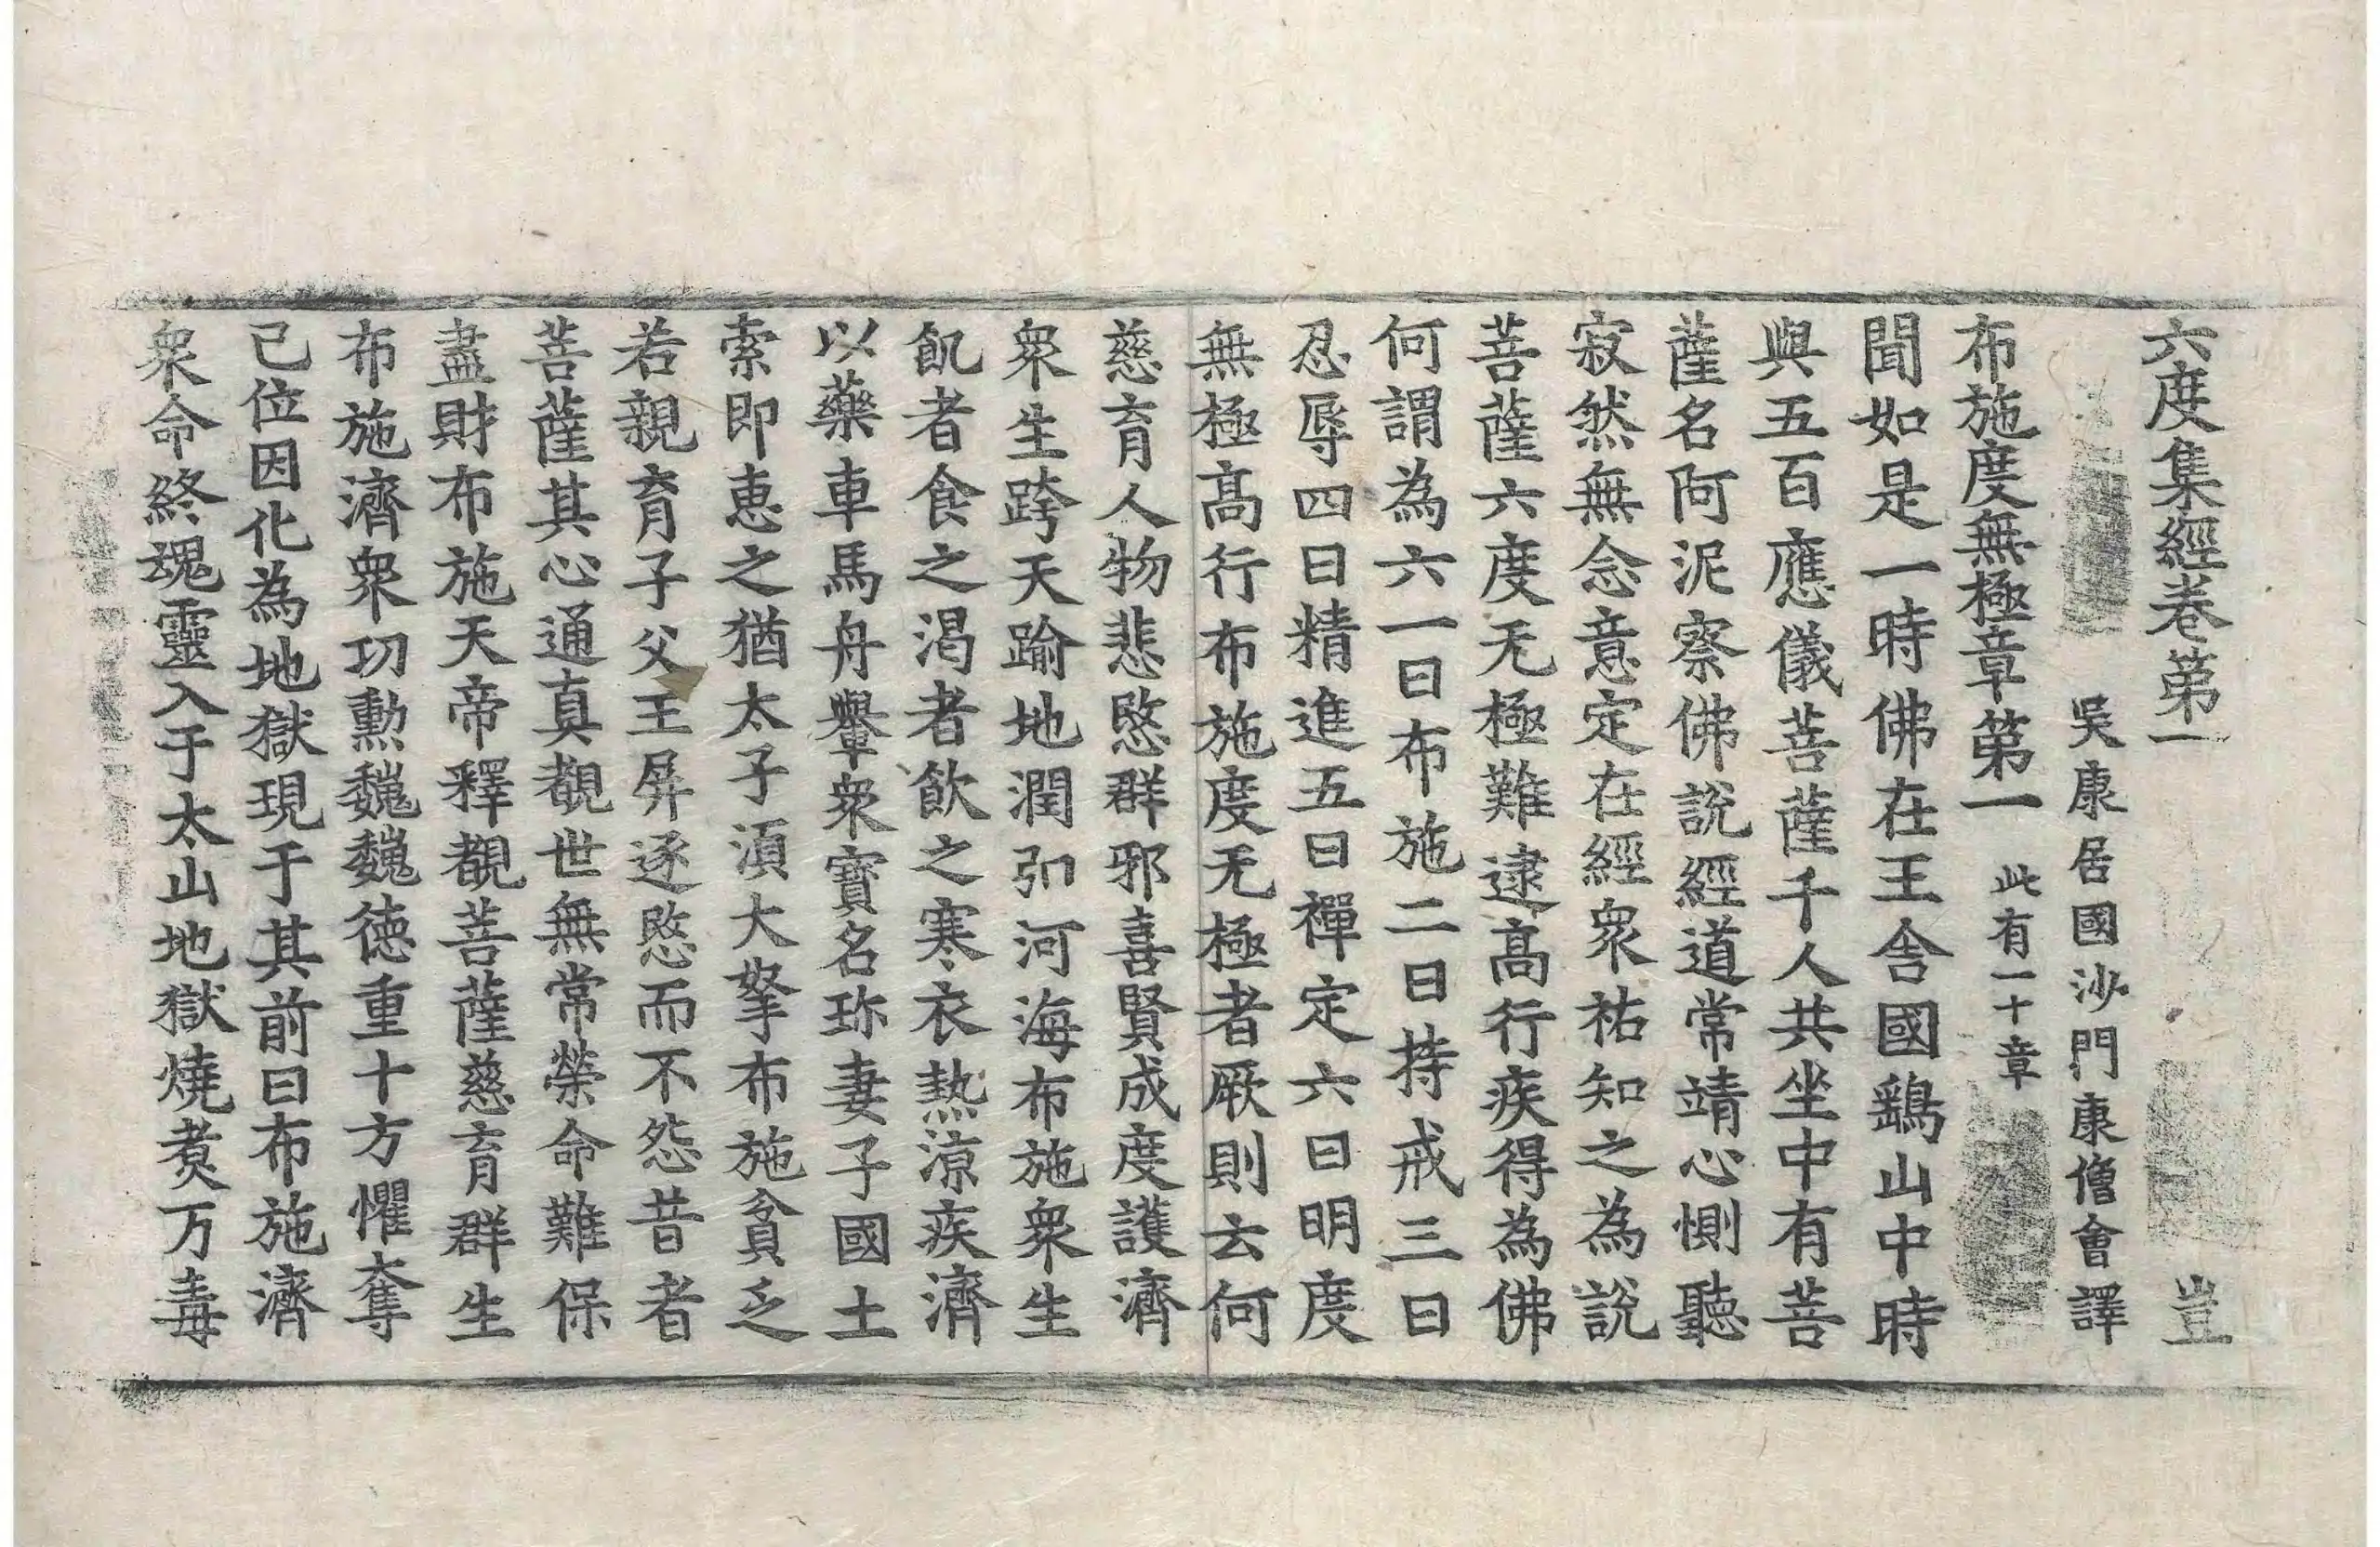 六度集經卷第一 豈
吳康居國沙門康僧會譯
布施度無極章第一 此有一十章
聞如是一時佛在王舍國鷂山中時
與五百應儀菩薩千人共坐中有菩
薩名阿泥察佛說經道常靖心惻聽
寂然無念意定在經衆祐知之為說
菩薩六度无極難逮高行疾得為佛
何謂為六一曰布施二曰持戒三曰
忍辱四曰精進五曰禪定六曰明度
無極高行布施度无極者厥則云何
慈育人物悲愍群邪喜賢成度護濟
衆生跨天踰地潤弘河海布施衆生
飢者食之渴者飲之寒衣熱涼疾濟
以藥車馬舟轝衆寶名珎妻子國土
索即惠之猶太子湏大拏布施貧乏
若親育子父王屏逐愍而不怨昔者
菩薩其心通真覩世無常榮命難保
盡財布施天帝釋覩菩薩慈育群生
布施濟衆功勳巍巍德重十方懼奪
己位因化為地獄現于其前曰布施濟
衆命終魂靈入于太山地獄燒煑万毒